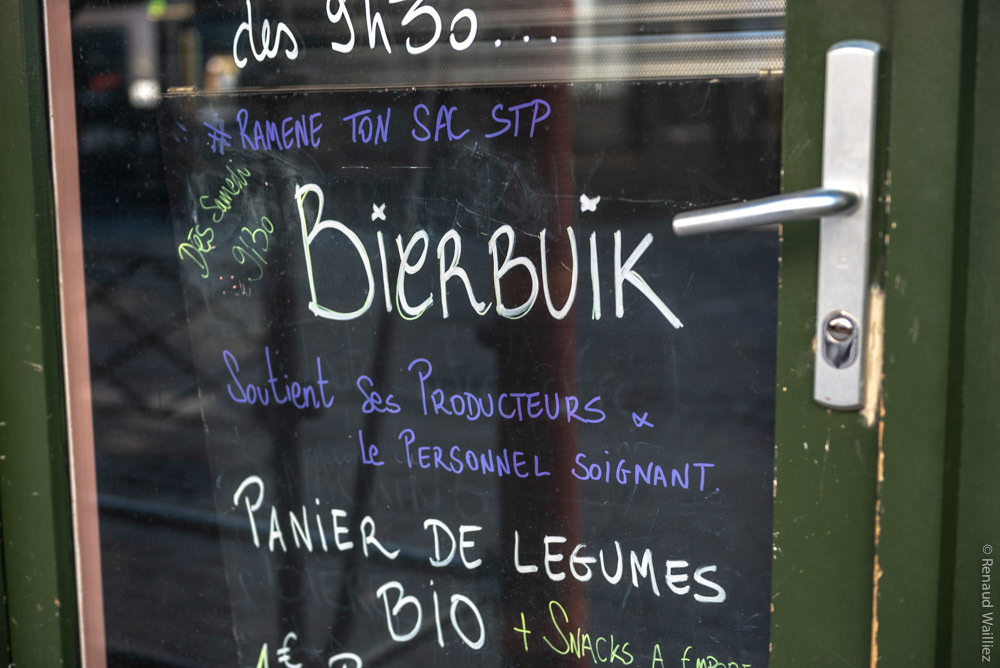 dès 9h30...
#RAMENE TON SAC STP
Dès Samedi
9h30
BierBuik
Soutient ses PRODUCTEURS &
le PERSONNEL SOIGNANT.
PANIER DE LEGUMES
BIO
+ SNACKS A EMPORT
1€
© Renaud Wailliez